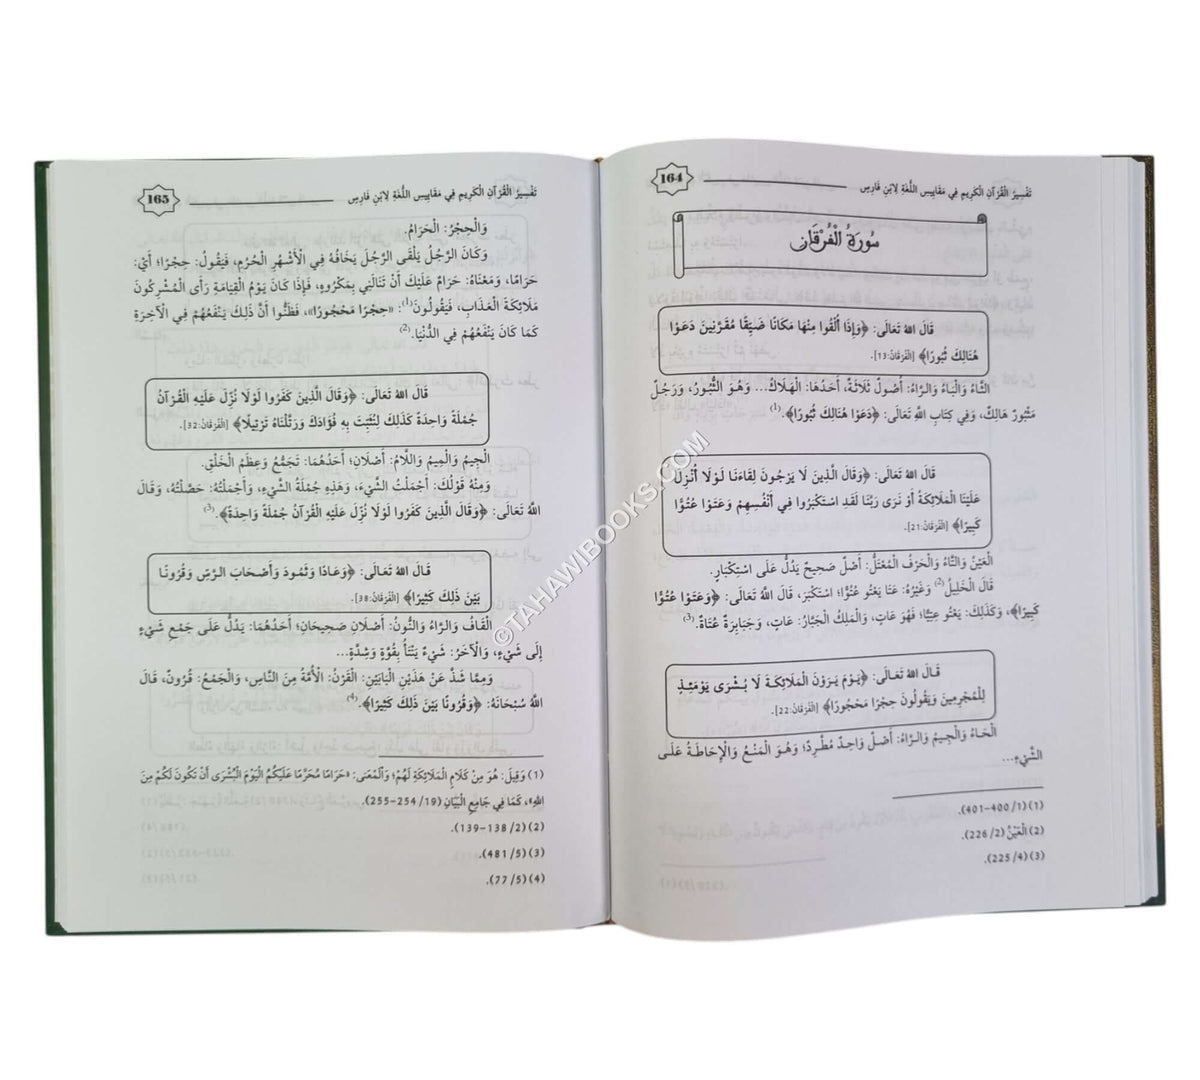 تَفْسِيرُ الْقُرْآنِ الْكَرِيمِ فِي مَقَايِيسِ اللُّغَةِ لِابْنِ فَارِس 164
سُورَةُ الْفُرْقَانِ
قَالَ اللهُ تَعَالَى: ﴿وَإِذَا أُلْقُوا مِنْهَا مَكَانًا ضَيِّقًا مُقَرَّنِينَ دَعَوْا
هُنَالِكَ ثُبُورًا﴾ [الْفُرْقَانُ:13].
الثَّاءُ وَالْبَاءُ وَالرَّاءُ: أُصُولٌ ثَلَاثَةٌ، أَحَدُهَا: الْهَلَاكُ... وَهُوَ الثُّبُورُ، وَرَجُلٌ
مَثْبُورٌ هَالِكٌ، وَفِي كِتَابِ اللهِ تَعَالَى: ﴿دَعَوْا هُنَالِكَ ثُبُورًا﴾.(1)
قَالَ اللهُ تَعَالَى: ﴿وَقَالَ الَّذِينَ لَا يَرْجُونَ لِقَاءَنَا لَوْلَا أُنْزِلَ
عَلَيْنَا الْمَلَائِكَةُ أَوْ نَرَى رَبَّنَا لَقَدِ اسْتَكْبَرُوا فِي أَنْفُسِهِمْ وَعَتَوْا عُتُوًّا
كَبِيرًا﴾ [الْفُرْقَانُ:21].
الْعَيْنُ وَالتَّاءُ وَالْحَرْفُ الْمُعْتَلُّ: أَصْلٌ صَحِيحٌ يَدُلُّ عَلَى اسْتِكْبَارٍ.
قَالَ الْخَلِيلُ(2) وَغَيْرُهُ: عَتَا يَعْتُو عُتُوًّا؛ اسْتَكْبَرَ، قَالَ اللهُ تَعَالَى: ﴿وَعَتَوْا عُتُوًّا
كَبِيرًا﴾، وَكَذَلِكَ: يَعْتُو عِتِيًّا؛ فَهُوَ عَاتٍ، وَالْمَلِكُ الْجَبَّارُ: عَاتٍ، وَجَبَابِرَةٌ عُتَاةٌ.(3)
قَالَ اللهُ تَعَالَى: ﴿يَوْمَ يَرَوْنَ الْمَلَائِكَةَ لَا بُشْرَى يَوْمَئِذٍ
لِلْمُجْرِمِينَ وَيَقُولُونَ حِجْرًا مَحْجُورًا﴾ [الْفُرْقَانُ:22].
الْحَاءُ وَالْجِيمُ وَالرَّاءُ: أَصْلٌ وَاحِدٌ مُطَّرِدٌ؛ وَهُوَ الْمَنْعُ وَالْإِحَاطَةُ عَلَى
الشَّيْءِ...
(1) (1/ 400-401).
(2) الْعَيْنُ (2/ 226).
(3) (4/ 225).
تَفْسِيرُ الْقُرْآنِ الْكَرِيمِ فِي مَقَايِيسِ اللُّغَةِ لِابْنِ فَارِس 165
وَالْحِجْرُ: الْحَرَامُ.
وَكَانَ الرَّجُلُ يَلْقَى الرَّجُلَ يَخَافُهُ فِي الْأَشْهُرِ الْحُرُمِ، فَيَقُولُ: حِجْرًا؛ أَيْ:
حَرَامًا، وَمَعْنَاهُ: حَرَامٌ عَلَيْكَ أَنْ تَنَالَنِي بِمَكْرُوهٍ، فَإِذَا كَانَ يَوْمُ الْقِيَامَةِ رَأَى الْمُشْرِكُونَ
مَلَائِكَةَ الْعَذَابِ، فَيَقُولُونَ(1): «حِجْرًا مَحْجُورًا»، فَظَنُّوا أَنَّ ذَلِكَ يَنْفَعُهُمْ فِي الْآخِرَةِ
كَمَا كَانَ يَنْفَعُهُمْ فِي الدُّنْيَا.(2)
قَالَ اللهُ تَعَالَى: ﴿وَقَالَ الَّذِينَ كَفَرُوا لَوْلَا نُزِّلَ عَلَيْهِ الْقُرْآنُ
جُمْلَةً وَاحِدَةً كَذَلِكَ لِنُثَبِّتَ بِهِ فُؤَادَكَ وَرَتَّلْنَاهُ تَرْتِيلًا﴾ [الْفُرْقَانُ:32].
الْجِيمُ وَالْمِيمُ وَاللَّامُ: أَصْلَانِ؛ أَحَدُهُمَا: تَجَمُّعٌ وَعِظَمُ الْخَلْقِ.
وَمِنْهُ قَوْلُكَ: أَجْمَلْتُ الشَّيْءَ، وَهَذِهِ جُمْلَةُ الشَّيْءِ، وَأَجْمَلْتُهُ: حَصَّلْتُهُ، وَقَالَ
اللهُ تَعَالَى: ﴿وَقَالَ الَّذِينَ كَفَرُوا لَوْلَا نُزِّلَ عَلَيْهِ الْقُرْآنُ جُمْلَةً وَاحِدَةً﴾.(3)
قَالَ اللهُ تَعَالَى: ﴿وَعَادًا وَثَمُودَ وَأَصْحَابَ الرَّسِّ وَقُرُونًا
بَيْنَ ذَلِكَ كَثِيرًا﴾ [الْفُرْقَانُ:38].
الْقَافُ وَالرَّاءُ وَالنُّونُ: أَصْلَانِ صَحِيحَانِ؛ أَحَدُهُمَا: يَدُلُّ عَلَى جَمْعِ شَيْءٍ
إِلَى شَيْءٍ، وَالْآخَرُ: شَيْءٌ يَنْتَأُ بِقُوَّةٍ وَشِدَّةٍ...
وَمِمَّا شَذَّ عَنْ هَذَيْنِ الْبَابَيْنِ: الْقَرْنُ: الْأُمَّةُ مِنَ النَّاسِ، وَالْجَمْعُ: قُرُونٌ، قَالَ
اللهُ سُبْحَانَهُ: ﴿وَقُرُونًا بَيْنَ ذَلِكَ كَثِيرًا﴾.(4)
(1) وَقِيلَ: هُوَ مِنْ كَلَامِ الْمَلَائِكَةِ لَهُمْ؛ وَالْمَعْنَى: «حَرَامًا مُحَرَّمًا عَلَيْكُمُ الْيَوْمَ الْبُشْرَى أَنْ تَكُونَ لَكُمْ مِنَ
اللهِ»، كَمَا فِي جَامِعِ الْبَيَانِ (19/ 254-255).
(2) (2/ 138-139).
(3) (5/ 481).
(4) (5/ 77).
©TAHAWIBOOKS.COM